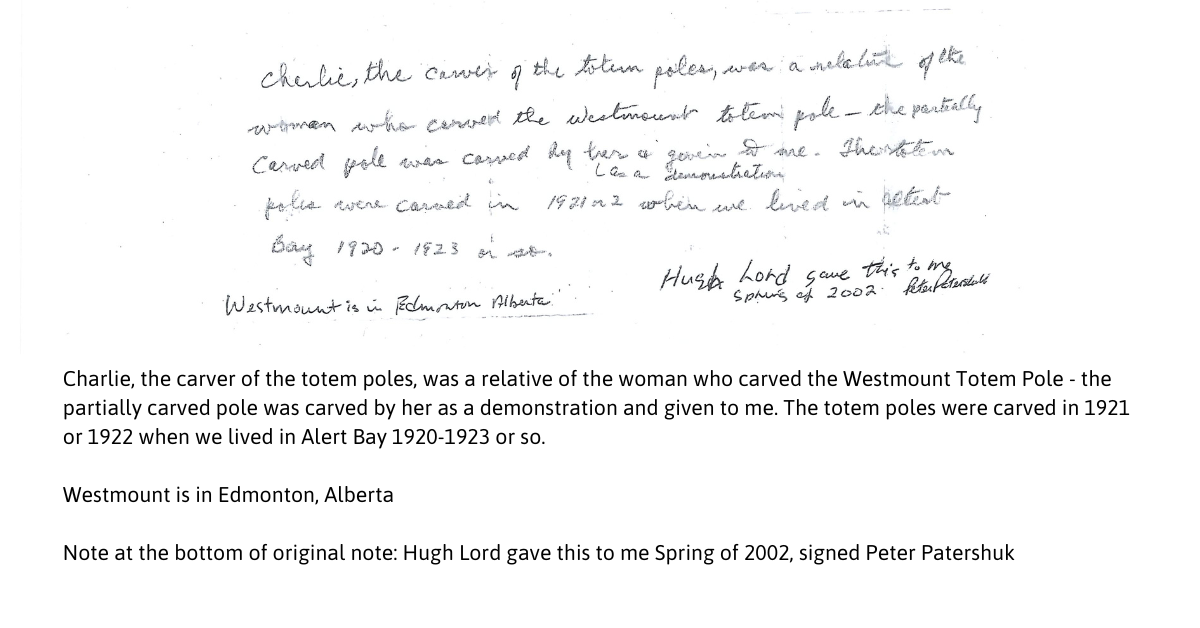 Charlie, the carver of the totem poles, was a relative of the
woman who carved the Westmount totem pole – the partially
carved pole was carved by her & given to me. The totem
as a demonstration
poles were carved in 1921 or 2 when we lived in Alert
Bay 1920 - 1923 or so.
Hugh Lord gave this to me
Spring of 2002. Peter Patershuk
Westmount is in Edmonton Alberta
Charlie, the carver of the totem poles, was a relative of the woman who carved the Westmount Totem Pole - the
partially carved pole was carved by her as a demonstration and given to me. The totem poles were carved in 1921
or 1922 when we lived in Alert Bay 1920-1923 or so.
Westmount is in Edmonton, Alberta
Note at the bottom of original note: Hugh Lord gave this to me Spring of 2002, signed Peter Patershuk